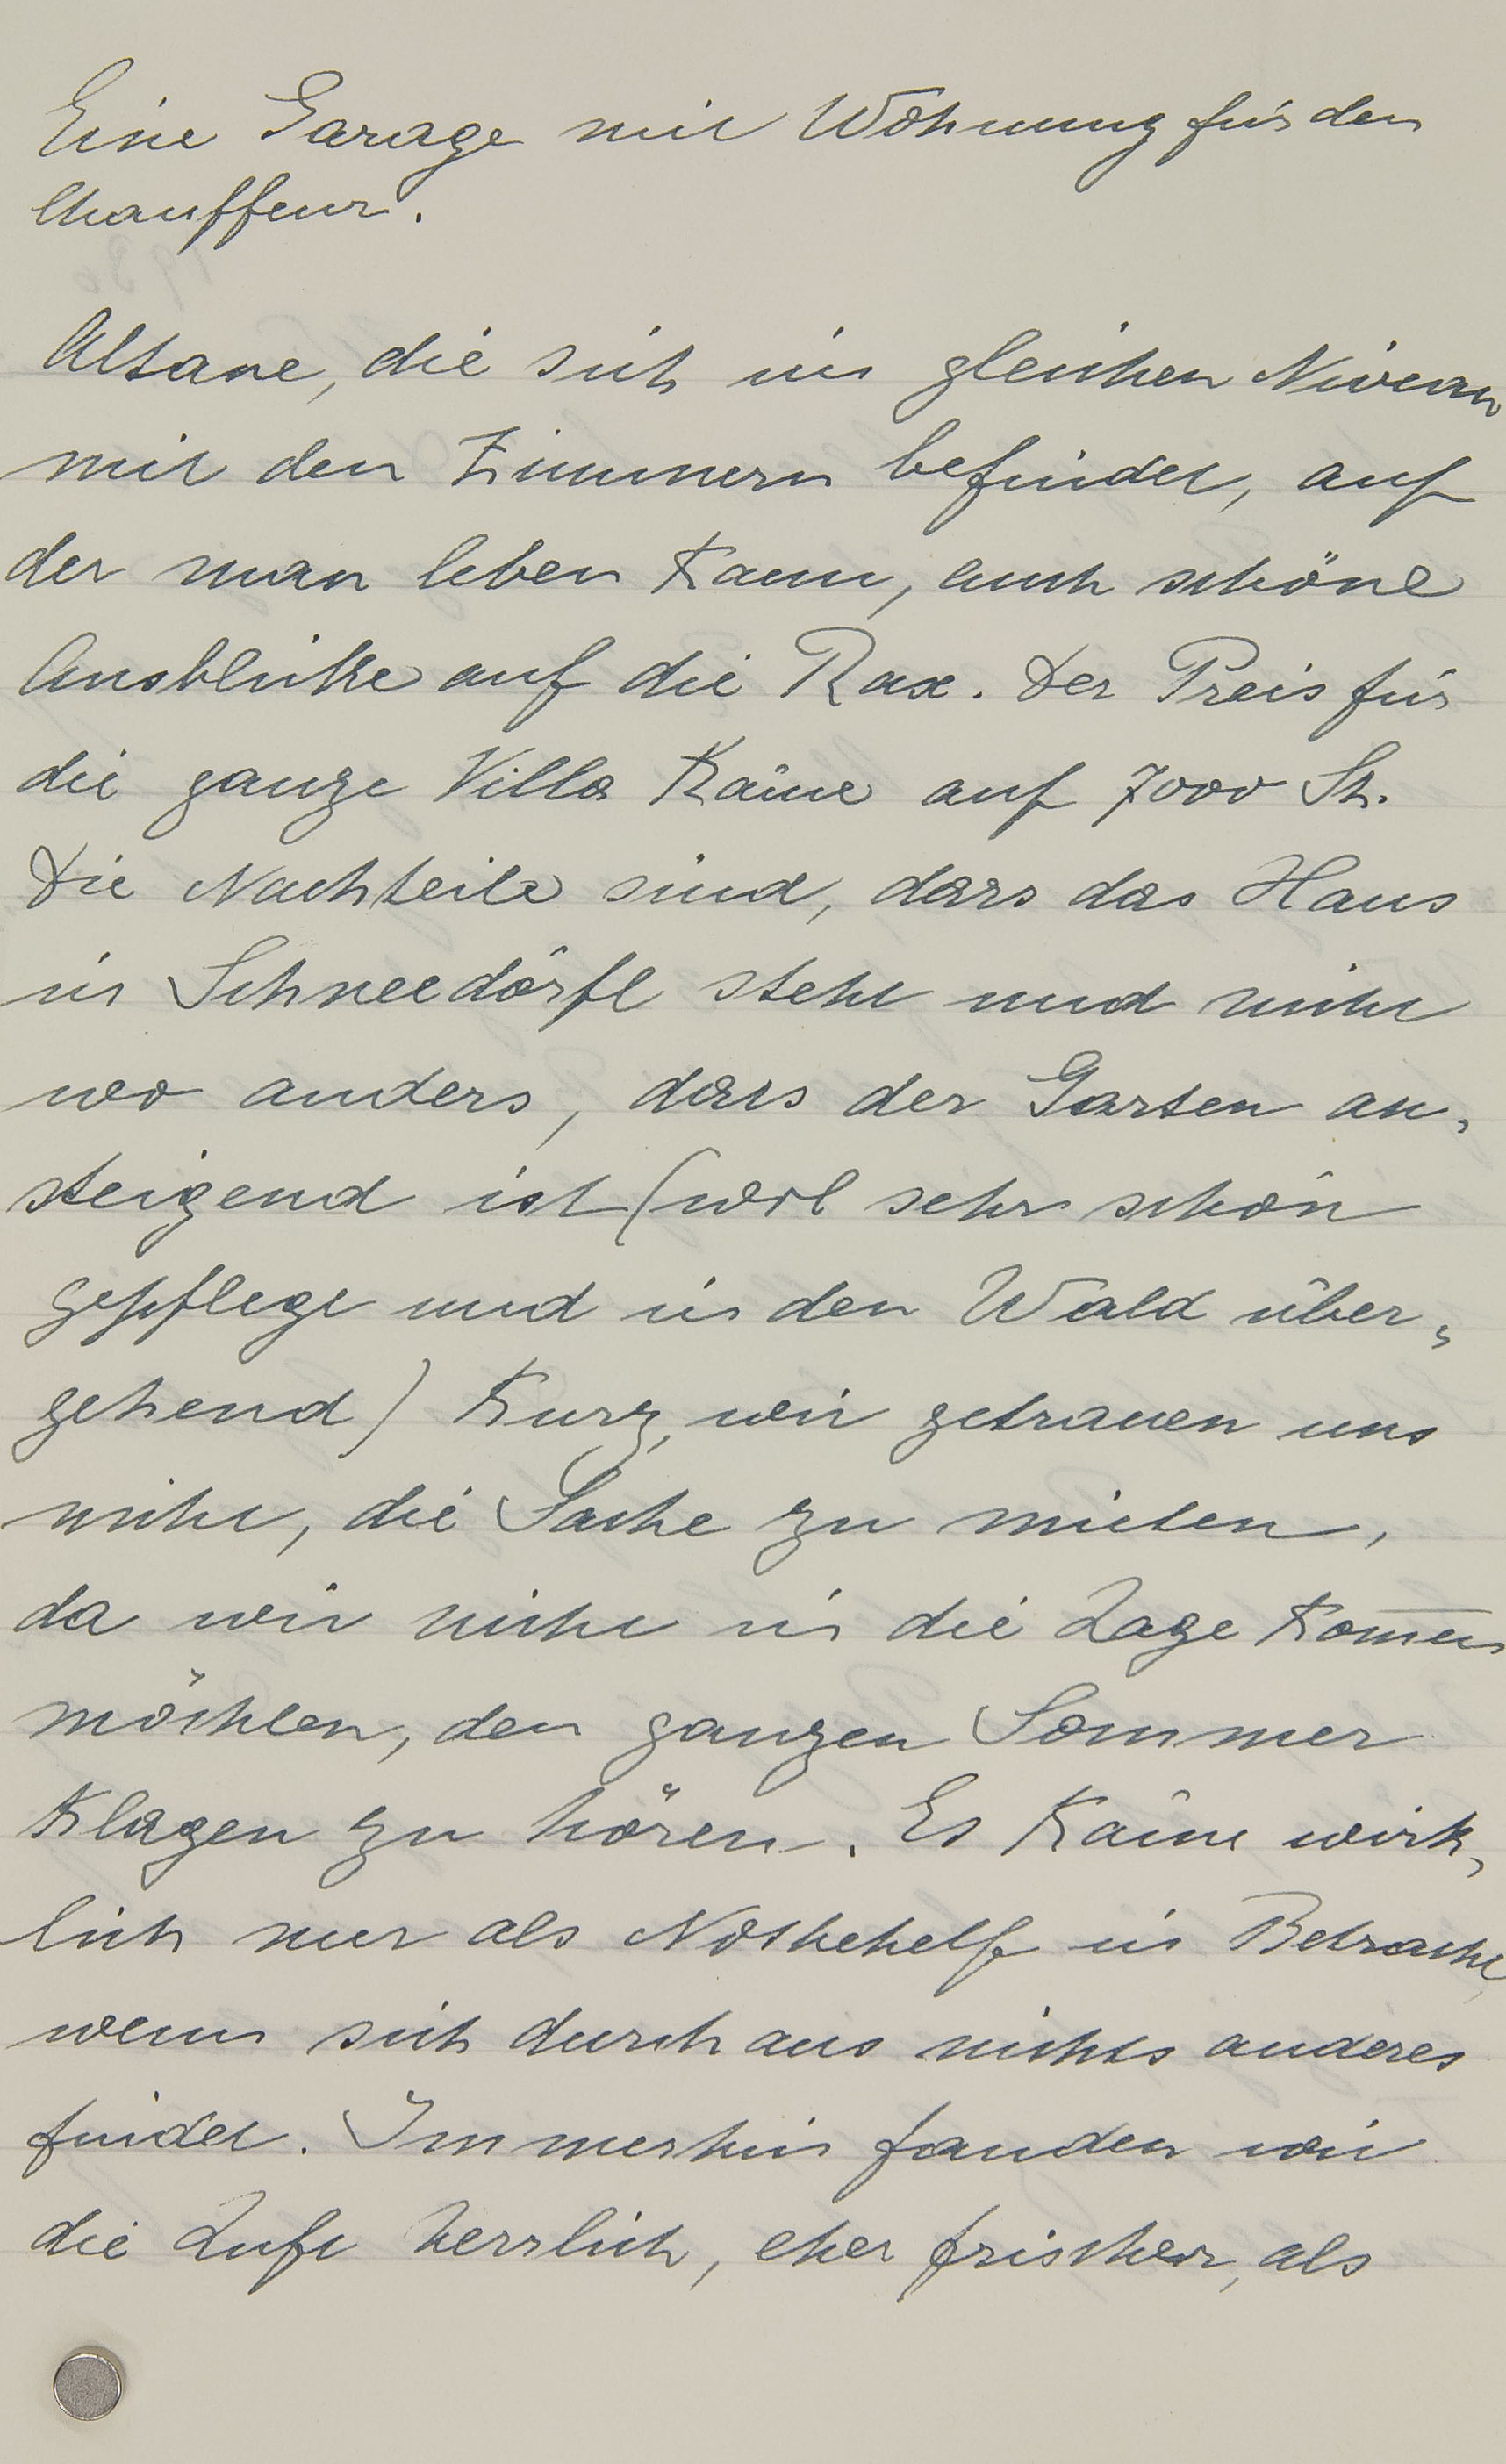 Eine Garage mit Wohnung für den
Chauffeur.
Altane, die sich im gleichen Niveau
mit den Zimmern befindet, auf
der man leben kann, auch schöne
Ausblicke auf die Rax. Der Preis für
die ganze Villa käme auf 7000 Sh.
Die Nachteile sind, dass das Haus
in Schneedörfl steht und nicht
wo anders, dass der Garten an,
steigend ist (wol sehr schön
gepflegt und in den Wald über,
gehend) Kurz, wir getrauen uns
nicht, die Sache zu mieten,
da wir nicht in die Lage kom̅en
möchten, den ganzen Sommer
Klagen zu hören. Es käme wirk,
lich nur als Notbehelf in Betracht,
wenn sich durchaus nichts anderes
findet. Immerhin fanden wir
die Luft herrlich, eher frischer, als